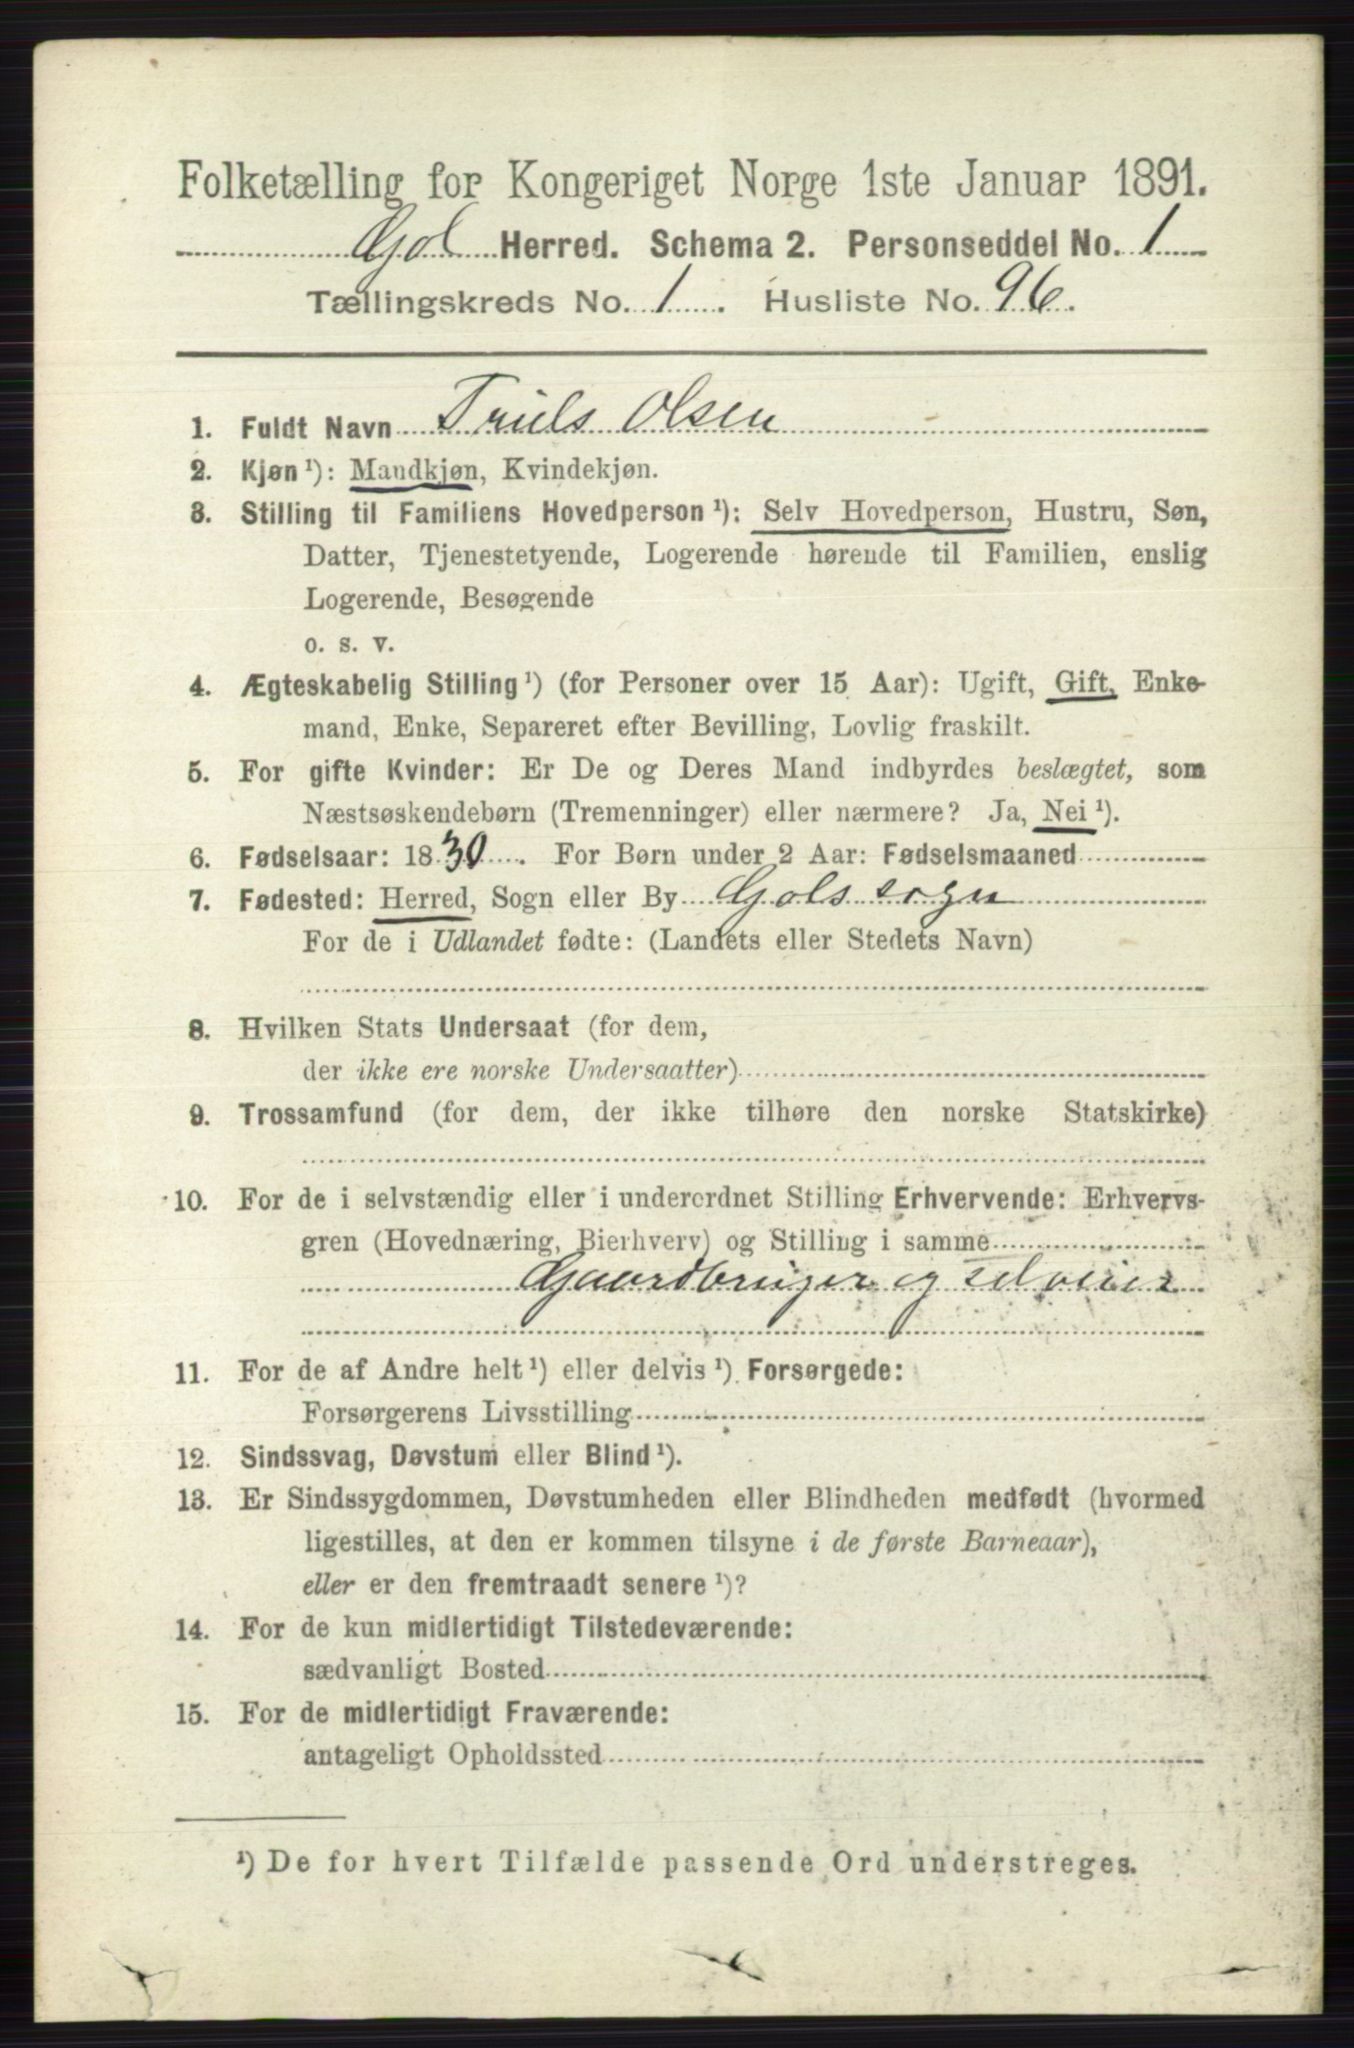 Folketælling for Kongeriget Norge 1ste Januar 1891.
Gol Herred. Schema 2. Personseddel No. 1
Tællingskreds No. 1. Husliste No. 96.
1. Fuldt Navn Truls Olsen
2. Kjøn ¹): Mandkjøn, Kvindekjøn.
3. Stilling til Familiens Hovedperson ¹): Selv Hovedperson, Hustru, Søn,
Datter, Tjenestetyende, Logerende hørende til Familien, enslig
Logerende, Besøgende
o. s. v.
4. Ægteskabelig Stilling ¹) (for Personer over 15 Aar): Ugift, Gift, Enke-
mand, Enke, Separeret efter Bevilling, Lovlig fraskilt.
5. For gifte Kvinder: Er De og Deres Mand indbyrdes beslægtet, som
Næstsøskendebørn (Tremenninger) eller nærmere? Ja, Nei ¹).
6. Fødselsaar: 1830. For Børn under 2 Aar: Fødselsmaaned
7. Fødested: Herred, Sogn eller By Gols sogn
For de i Udlandet fødte: (Landets eller Stedets Navn)
8. Hvilken Stats Undersaat (for dem,
der ikke ere norske Undersaatter)
9. Trossamfund (for dem, der ikke tilhøre den norske Statskirke)
10. For de i selvstændig eller i underordnet Stilling Erhvervende: Erhvervs-
gren (Hovednæring, Bierhverv) og Stilling i samme
Gaardbruger og selveier
11. For de af Andre helt ¹) eller delvis ¹) Forsørgede:
Forsørgerens Livsstilling
12. Sindssvag, Døvstum eller Blind ¹).
13. Er Sindssygdommen, Døvstumheden eller Blindheden medfødt (hvormed
ligestilles, at den er kommen tilsyne i de første Barneaar),
eller er den fremtraadt senere ¹)?
14. For de kun midlertidigt Tilstedeværende:
sædvanligt Bosted
15. For de midlertidigt Fraværende:
antageligt Opholdssted
¹) De for hvert Tilfælde passende Ord understreges.